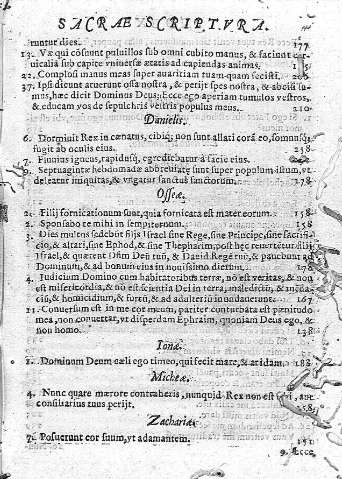 SACRAE SCRIPTVRA.
runtur dies. 177
13. Væ qui cōsuunt puluillos sub omni cubito manus, & faciunt cer-
uicalia sub capite vniuersæ ætatis ad capiendas animas.
22. Complosi manus meas super auaritiam tuam quam fecisti.
37. Ipsi dicunt aruerunt ossa nostra, & perijt spes nostra, & abscisi su-
mus, hæc dicit Dominus Deus; Ecce ego aperiam tumulos vestros,
& educam vos de sepulchris vestris populus meus. 210
Danielis.
6. Dormiuit Rex in cœnatus, cibiq; non sunt allati corā eo, somnusq;
fugit ab oculis eius. 238
7. Fluuius igneus, rapidusq; egrediebatur à facie eius.
9. Septuaginta hebdomadæ abbreuiatæ sunt super populum illum, vt
deleatur iniquitas, & vngatur sanctus sanctorum. 278
Osseæ.
2. Filij fornicationum sunt, quia fornicata est mater eorum. 158
2. Sponsabo te mihi in sempiternum. 158
3. Dies multos sedebūt filij Israel sine Rege, sine Principe, sine sacrifi-
cio, & altari, sine Ephod, & sine Theraphim, post hęc reuertētur filij
Israel, & quærent Dñm Deū suū, & Dauid Regē suū, & pauebunt ad
Dominum, & ad bonum eius in nouissimo dierum. 178
4. Iudicium Domino cum habitatoribus terræ, nō est veritas, & non
est misericordia, & nō est scientia Dei in terra, maledictū, & mēda-
ciū, & homicidium, & furtū, & adulteriū inundauerunt. 167
11. Conuersum est in me cor meum, pariter conturbata est pœnitudo
mea, non conuertar, vt disperdam Ephraim, quoniam Deus ego, &
non homo. 138
Ionæ.
1. Dominum Deum cæli ego timeo, qui fecit mare, & aridam. 188
Micheæ.
4. Nunc quare mœrore contraheris, nunquid Rex non est tibi, aut
consiliarius tuus perijt. 258
Zachariæ.
7. Posuerunt cor suum, vt adamantem. 151
9. Ecce